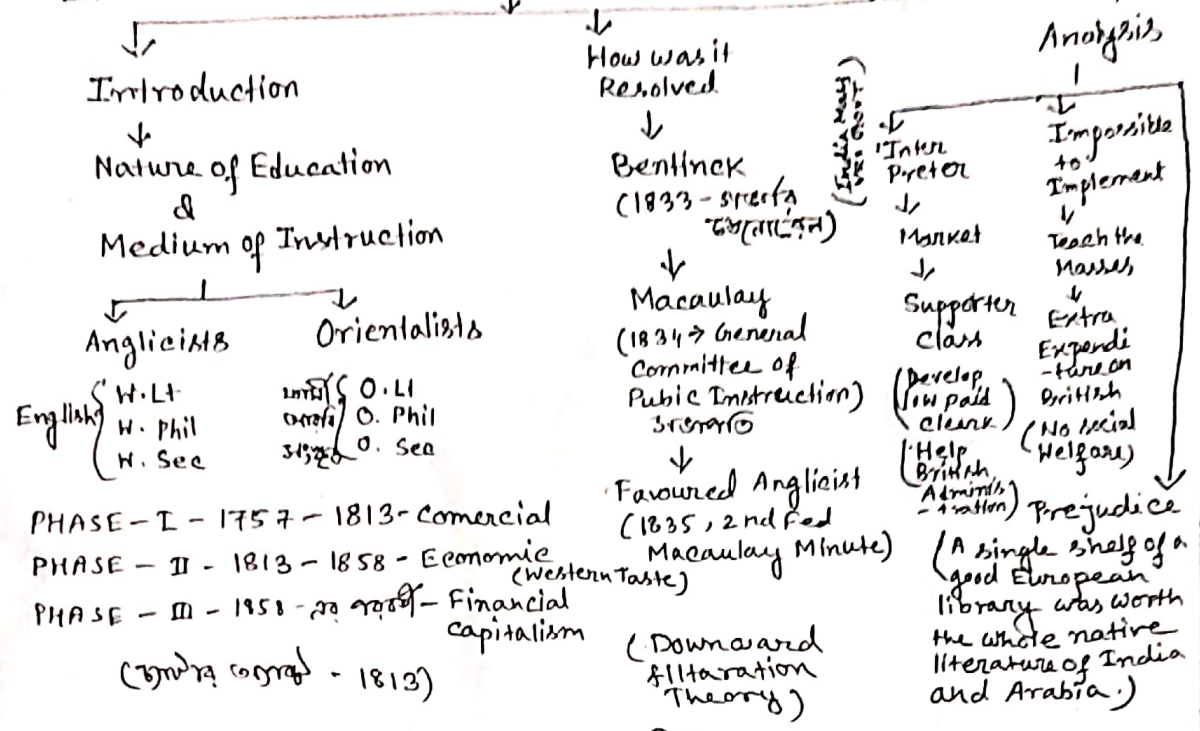 Introduction
Nature of Education
&
Medium of Instruction
Anglicists
Orientalists
English
W. Lt
W. Phil
W. Sec
O. Lt
O. Phil
O. Sec
PHASE - I - 1757 - 1813 - Comercial
PHASE - II - 1813 - 1858 - Economic
(Western Taste)
PHASE - III - 1958 - Financial
Capitalism
- 1813)
How was it
Resolved
Bentinck
(1833 -
Macaulay
(1834 → General
Committee of
Pubic Instruction)
Favoured Anglicist
(1835, 2nd Fed
Macaulay Minute)
(Downward
filtaration
Theory)
Analysis
Inter
Preter
Market
Supporter
Class
(Develop
low paid
Cleark)
(Help
British
Adminis
-tration)
Impossible
to
Implement
Teach the
Masses
Extra
Expendi
-ture on
British
(No social
Welfare)
Prejudice
(A single shelf of a
good European
library was worth
the whole native
literature of India
and Arabia.)